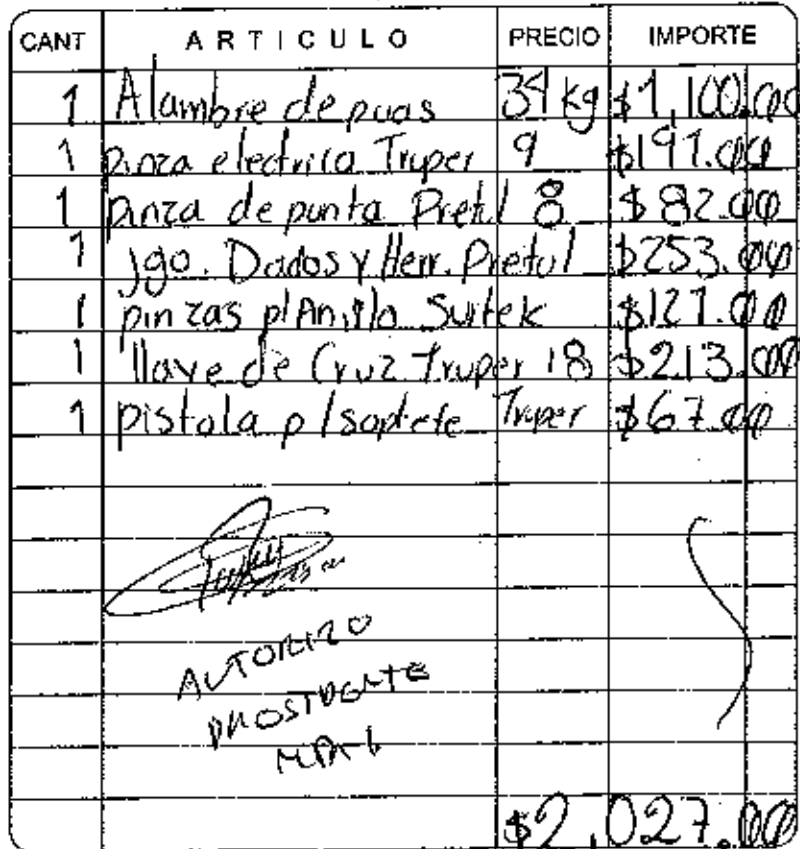 CANT ARTICULO PRECIO IMPORTE
1 Alambre de puas 34 kg $1,100.00
1 pinza electrica Truper 9 $191.00
1 pinza de punta Pretul 8 $82.00
1 jgo. Dados y Herr. Pretul $253.00
1 pinzas p/Anillo Surtek $121.00
1 llave de Cruz Truper 18 $213.00
1 pistola p/soplete Truper $67.00
AUTORIZO
$2,027.00